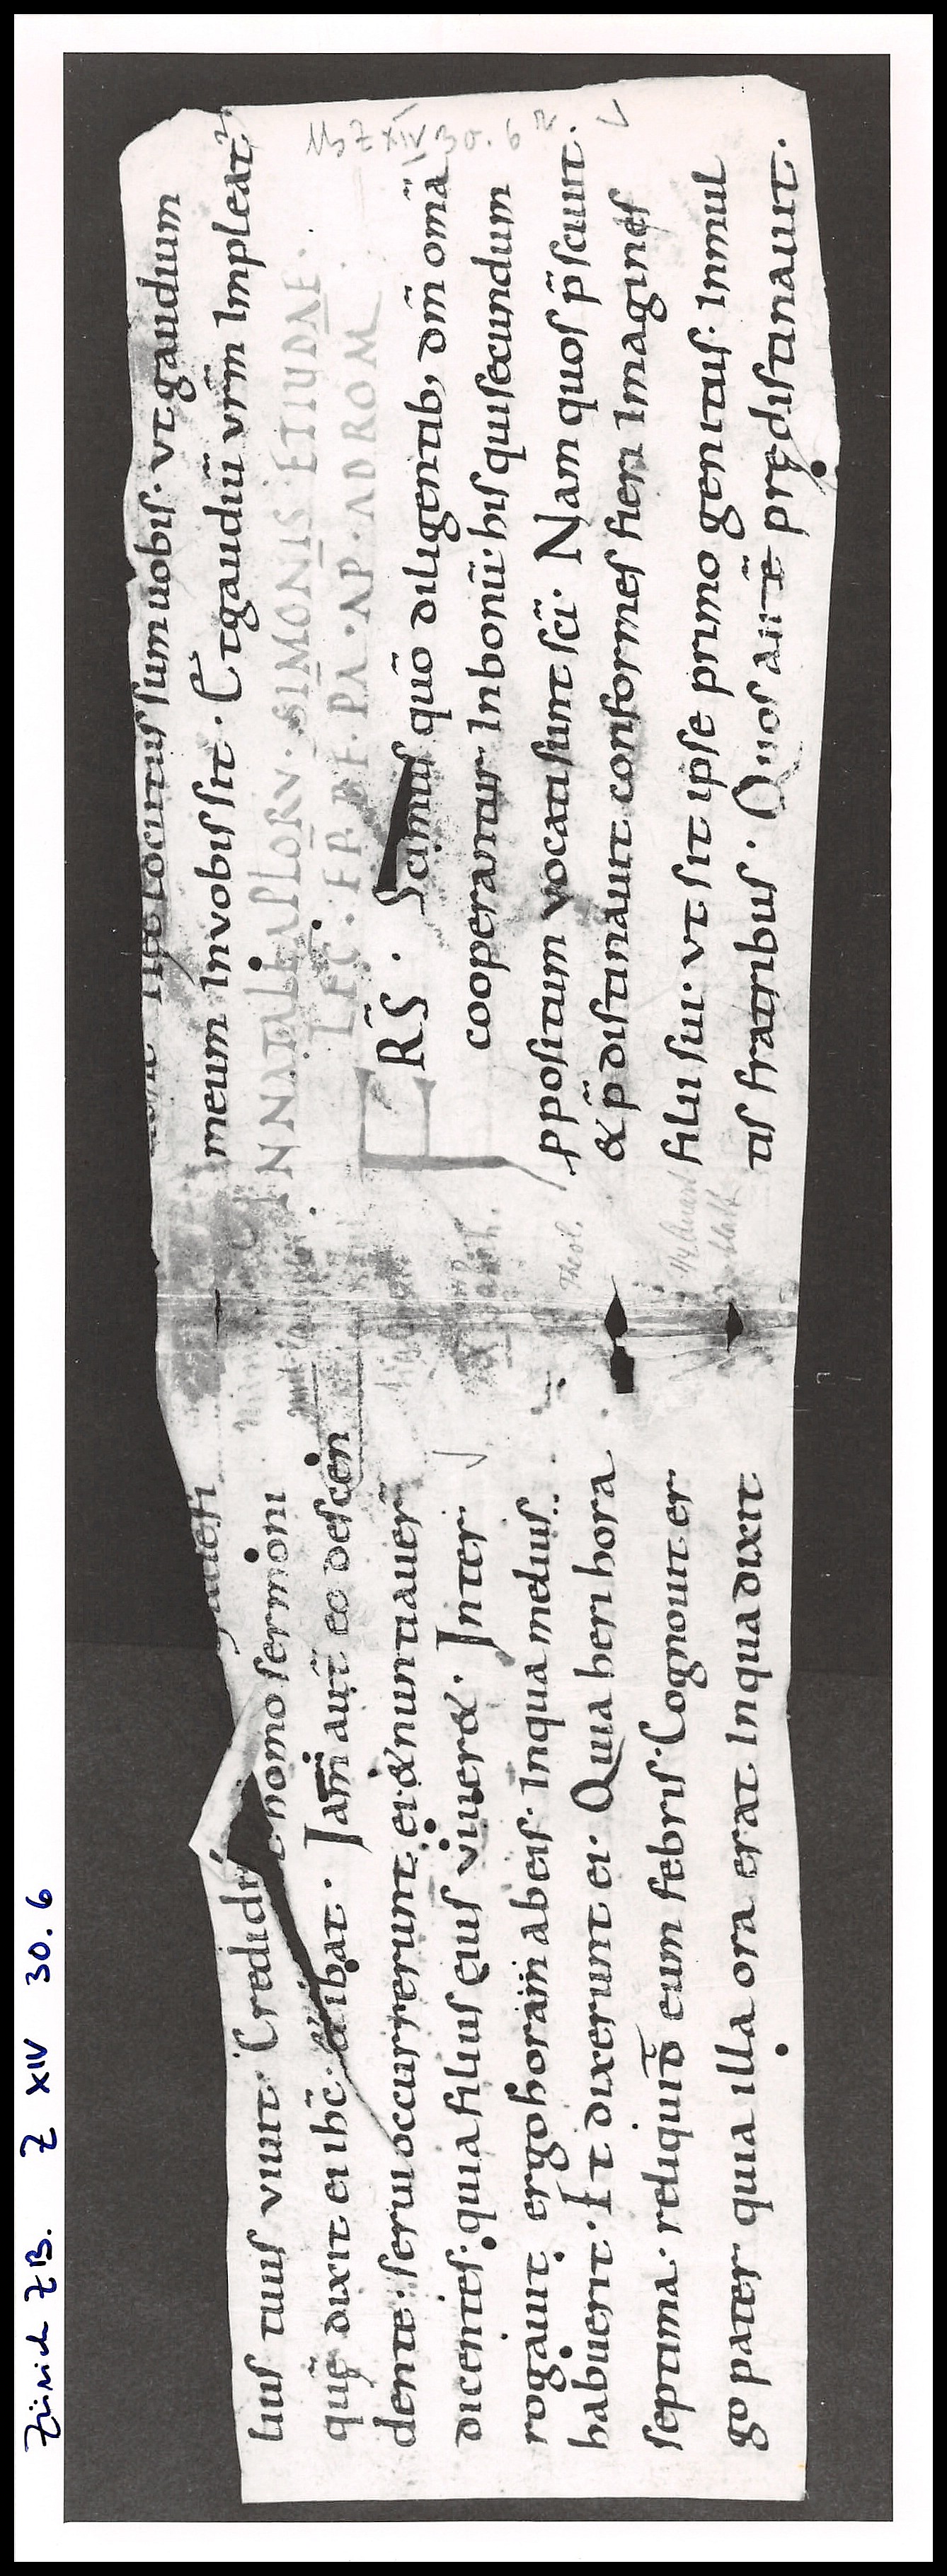 Zürich ZB. Z XIV 30. 6
lius tuus viuit. Credidit homo sermoni
quę dixit ei ihc̄. & ibat. Iam aut̄ eo descen
dente. serui occurrerunt ei & nuntiauer̄
dicentes. quia filius eius viuer&. Inter
rogauit ergo horam ab eis. Inqua melius
habuerit. Et dixerunt ei. Quia heri hora
septima. reliquid eum febris. Cognouit er
go pater quia illa ora erat Inqua dixit
Ms Z XIV 30. 6
locutus sum uobis. vt gaudium
meum Invobis sit. Et gaudiū vr̄m Impleat̄
INNATALE APLORV. SIMONIS ETIUDAE.
LEC. EP. BE. PA. AP. AD ROM
FRS̄. Scimus quō diligentib; dm̄ om̄a
cooperantur Inbonū. his qui secundum
ppositum vocati sunt sci. Nam quos p̄sciuit.
& p̄distinauit conformes fieri Imagines
filii sui. vt sit ipse primogenitus. Inmul
tis fratribus. Quos autē prędistinauit.
Theol.